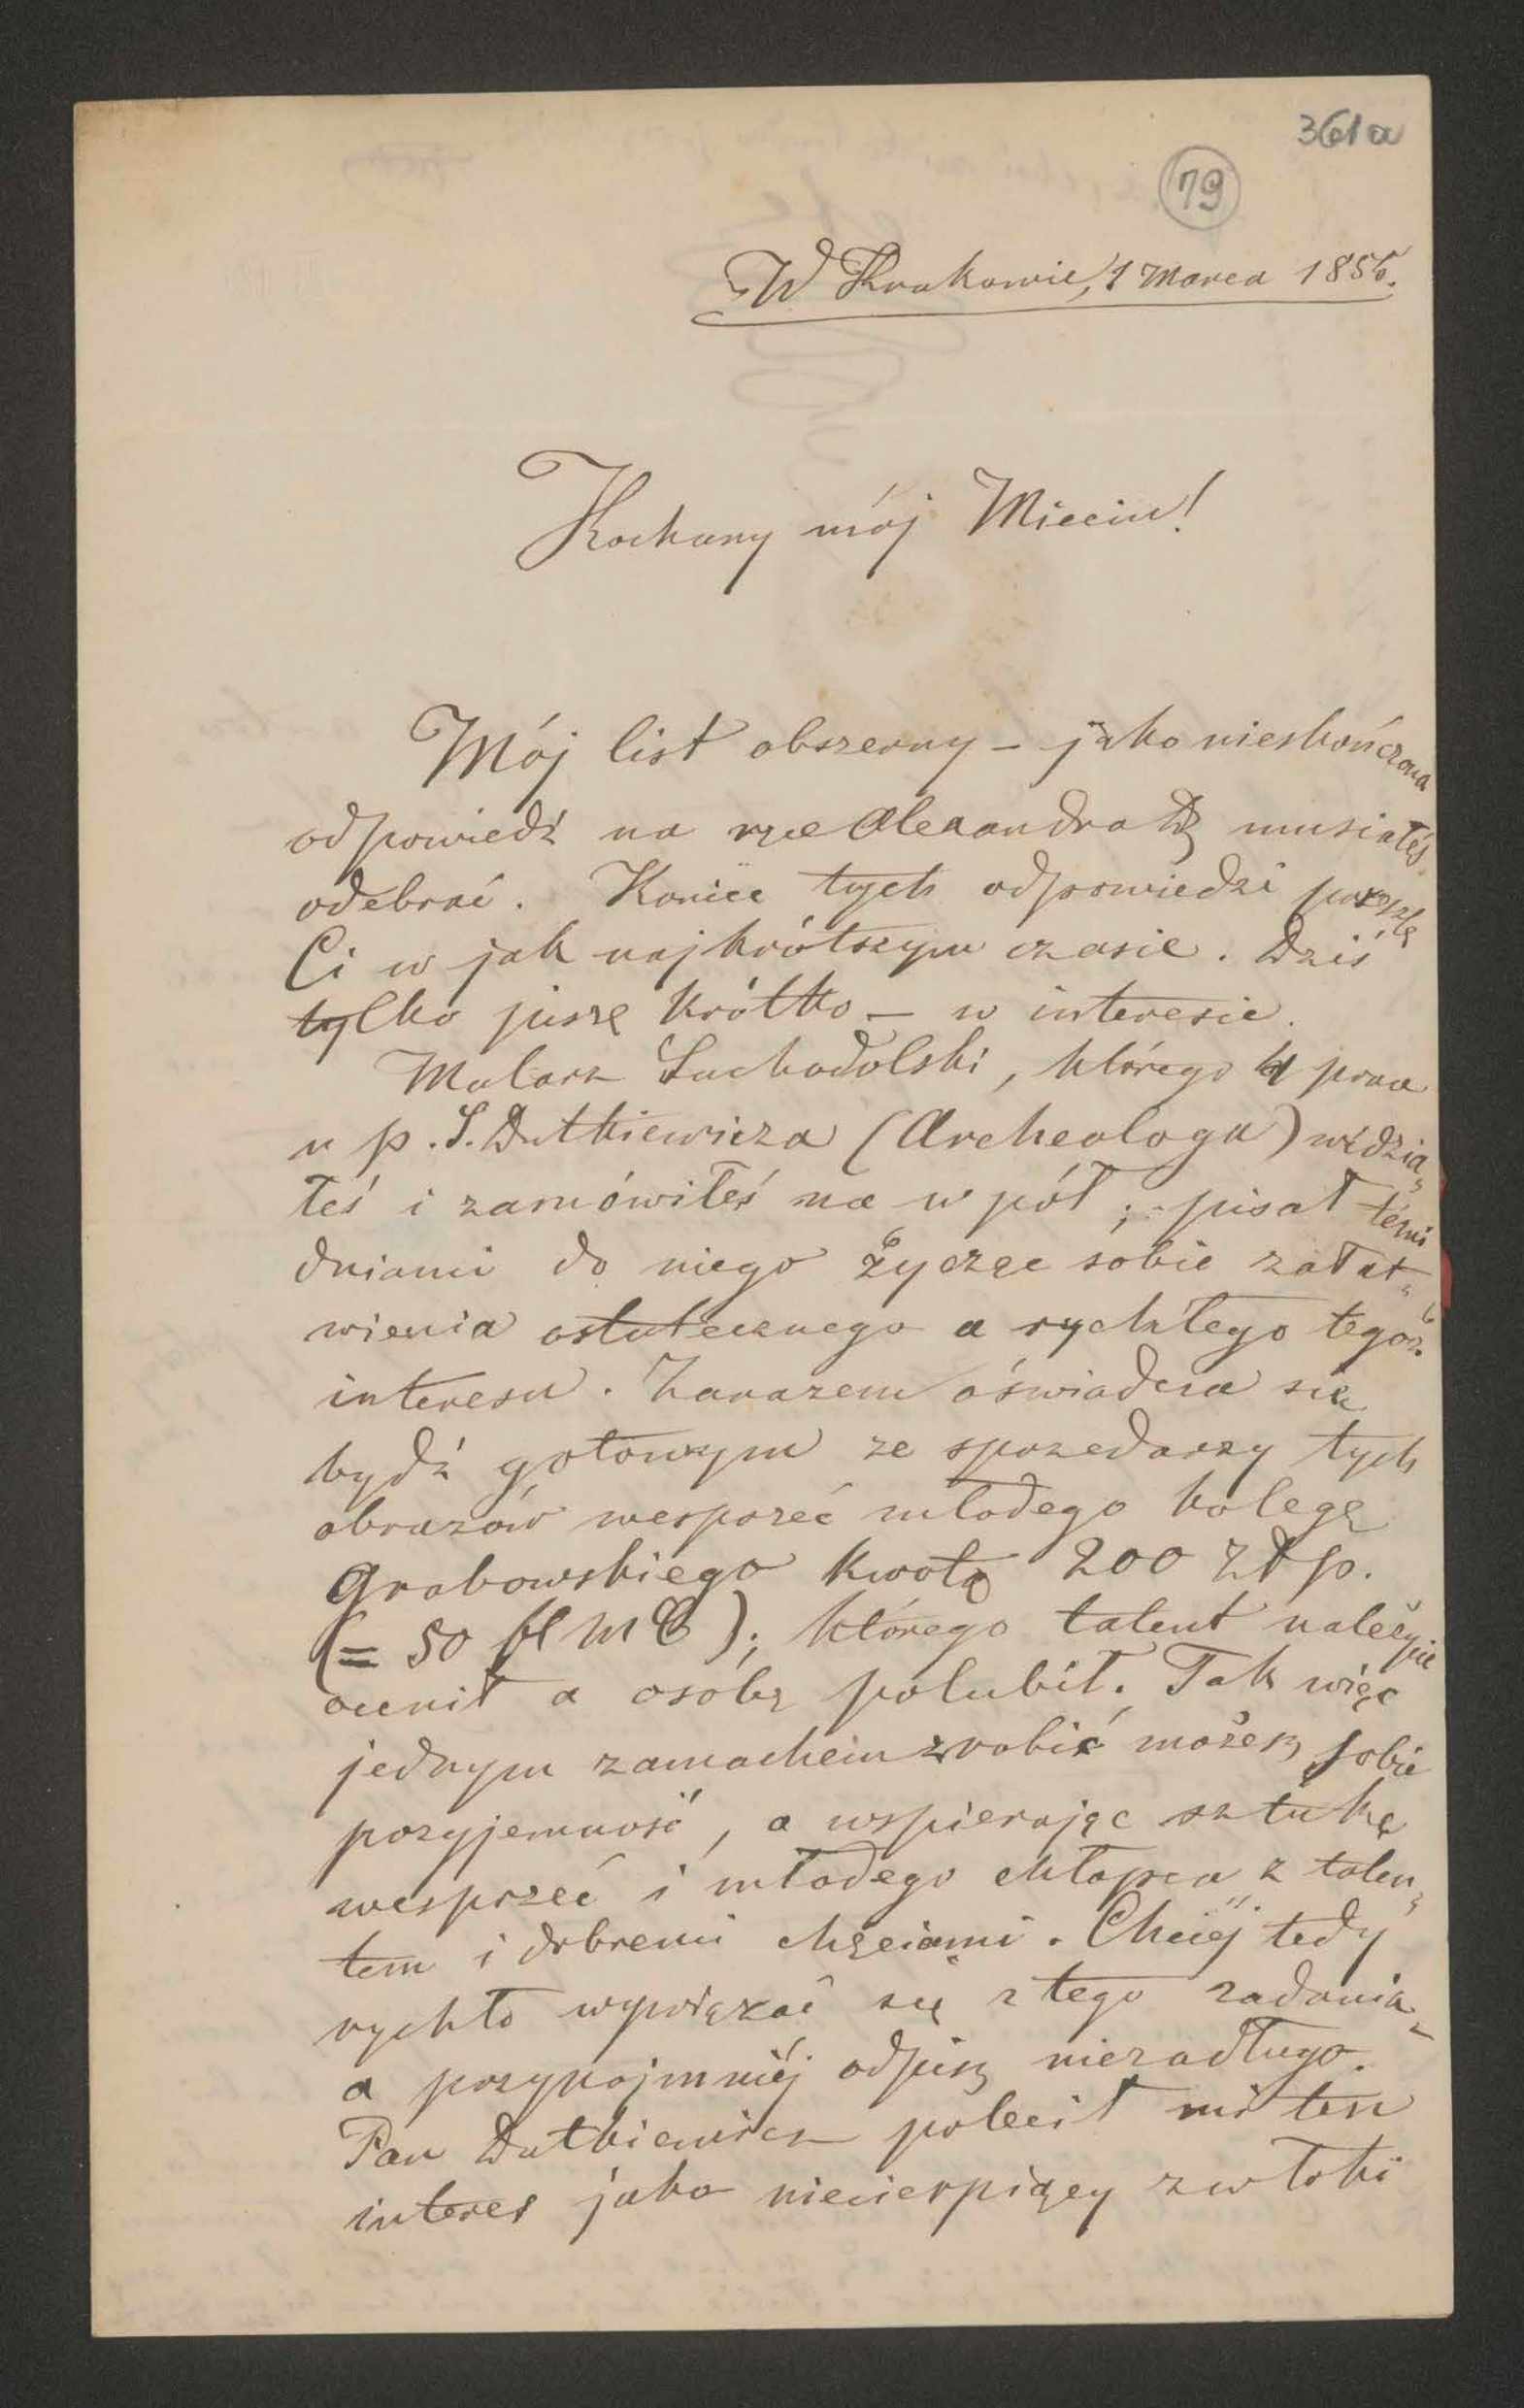 361a
79
W Krakowie, 1 Marca 1856.
Kochany mój Mieciu!
Mój list obszerny – jako nieskończona
odpowiedź na ręce Alexandra musiałeś
odebrać. Koniec tych odpowiedzi poszlę
Ci w jak najkrótszym czasie. Dziś
tylko piszę krótko – w interesie.
Malarz Suchodolski, którego 4 prace
u p. S. Dutkiewicza (Archeologa) widzia„
łeś i zamówiłeś na w pół; pisał témi
dniami do niego życząc sobie załat„
wienia ostatecznego a rychłego tegoż
interesu. Zarazem oświadcza się
bydź gotowym ze sprzedarzy tych
obrazów wesprzeć młodego kolegę
Grabowskiego kwotą 200 Złp.
(= 50 fl MC); którego talent należycie
ocenił a osóbę polubił. Tak więc
jednym zamachem zrobić możesz sobie
przyjemność, a wspierając sztukę
wesprzeć i młodego chłopca z talen„
tem i dobremi chęciami. Chciéj tedy
rychło wywiązać się z tego zadania –
a przynajmniéj odpisz niezadługo.
Pan Dutkiewicz polecił mi ten
interes jako niecierpiący zwłoki